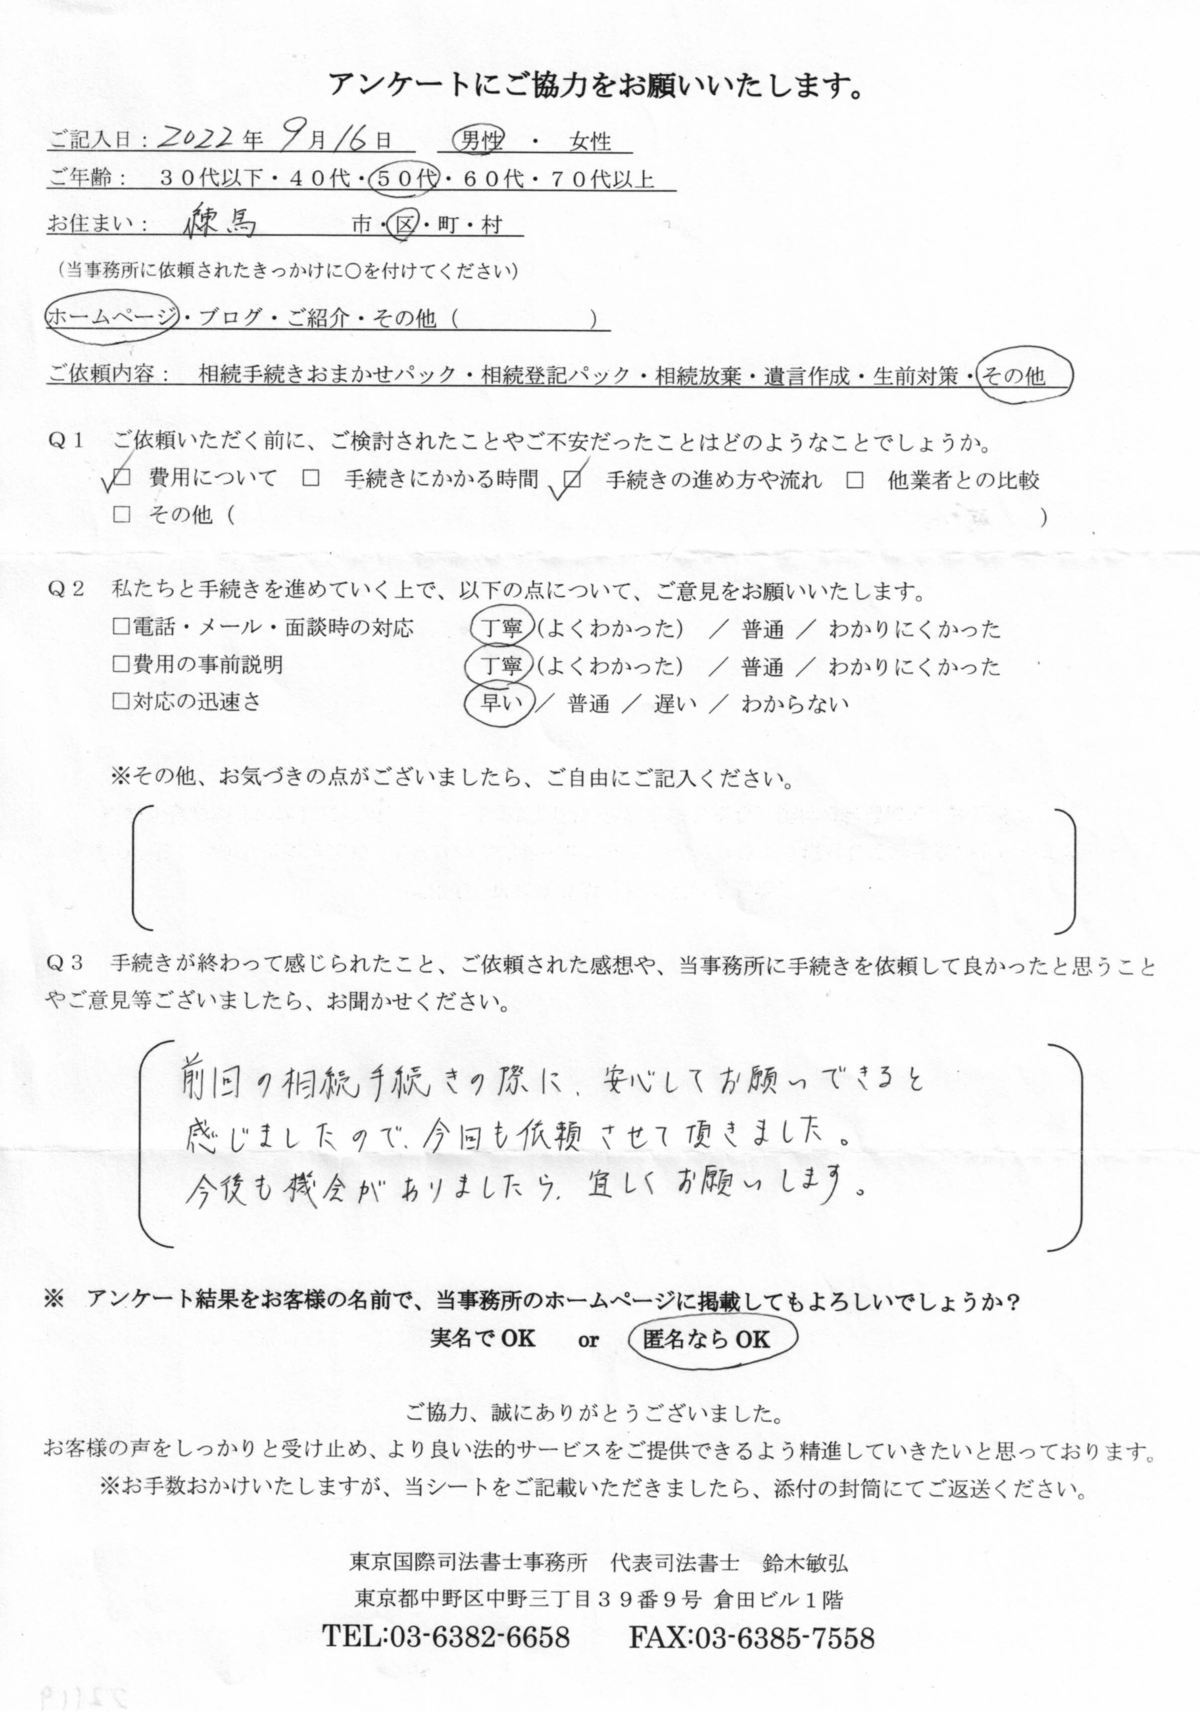 アンケートにご協力をお願いいたします。
ご記入日：2022年 9月16日 男性 ・ 女性
ご年齢： ３０代以下・４０代・５０代・６０代・７０代以上
お住まい： 練馬 市・区・町・村
（当事務所に依頼されたきっかけに○を付けてください）
ホームページ・ブログ・ご紹介・その他（ ）
ご依頼内容： 相続手続きおまかせパック・相続登記パック・相続放棄・遺言作成・生前対策・その他
Ｑ１ ご依頼いただく前に、ご検討されたことやご不安だったことはどのようなことでしょうか。
☑ 費用について □ 手続きにかかる時間 ☑ 手続きの進め方や流れ □ 他業者との比較
□ その他（ ）
Ｑ２ 私たちと手続きを進めていく上で、以下の点について、ご意見をお願いいたします。
□電話・メール・面談時の対応 丁寧（よくわかった） ／ 普通 ／ わかりにくかった
□費用の事前説明 丁寧（よくわかった） ／ 普通 ／ わかりにくかった
□対応の迅速さ 早い ／ 普通 ／ 遅い ／ わからない
※その他、お気づきの点がございましたら、ご自由にご記入ください。
Ｑ３ 手続きが終わって感じられたこと、ご依頼された感想や、当事務所に手続きを依頼して良かったと思うこと
やご意見等ございましたら、お聞かせください。
前回の相続手続きの際に、安心してお願いできると
感じましたので、今回も依頼させて頂きました。
今後も機会がありましたら、宜しくお願いします。
※ アンケート結果をお客様の名前で、当事務所のホームページに掲載してもよろしいでしょうか？
実名でOK or 匿名ならOK
ご協力、誠にありがとうございました。
お客様の声をしっかりと受け止め、より良い法的サービスをご提供できるよう精進していきたいと思っております。
※お手数おかけいたしますが、当シートをご記載いただきましたら、添付の封筒にてご返送ください。
東京国際司法書士事務所 代表司法書士 鈴木敏弘
東京都中野区中野三丁目３９番９号 倉田ビル１階
TEL:03-6382-6658 FAX:03-6385-7558